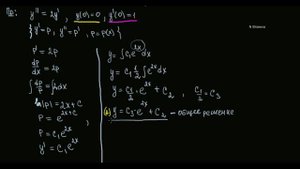 Пр: y'' = 2y', y(0)=0, y'(0)=1
{ y'=p, y''=p', p=p(x) }
p' = 2p
dp/dx = 2p
∫ dp/p = ∫ 2dx
ln|p| = 2x + C
p = e^{2x+C}
p = C₁e^{2x}
y' = C₁e^{2x}
y = ∫ C₁e^{2x} dx
y = C₁ ½ ∫ e^{2x} dx
y = C₁/2 · e^{2x} + C₂, C₁/2 = C₃
y = C₃·e^{2x} + C₂ – общее решение